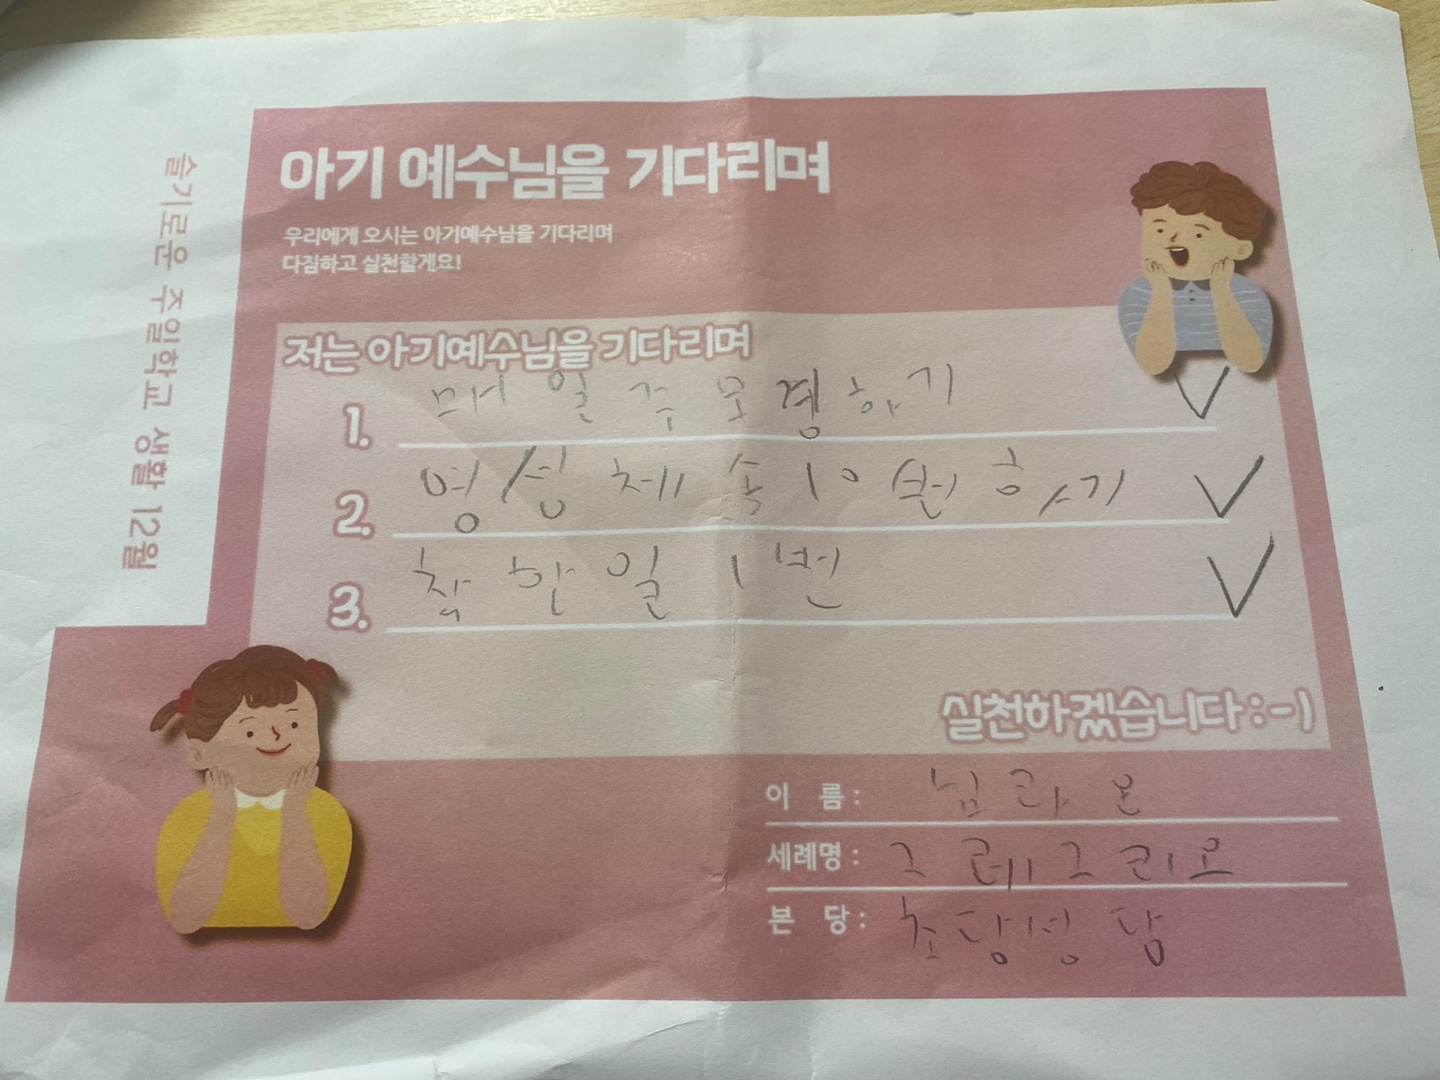 슬기로운 주일학교 생활 12월
아기 예수님을 기다리며
우리에게 오시는 아거예수님을 기다리며
다짐하고 실천할게요!
저는 아기예수님을 기다리며
1. 매일 주모경하기
2. 영성체 속 1번 하기
3. 착한일 1번
실천하겠습니다:-)
이 름: 남라온
세례명: 그레고리오
본 당: 초당성당